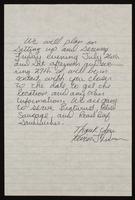 We will plan on
setting up and serving
Friday evening July 26th
and Sat afternoon and eve-
ning 27th. I will be in
contact with you closer
to the date to get the
location and any other
information. We are going
to serve
Sausage, and Roast Beef
Sandwiches.
Thank You